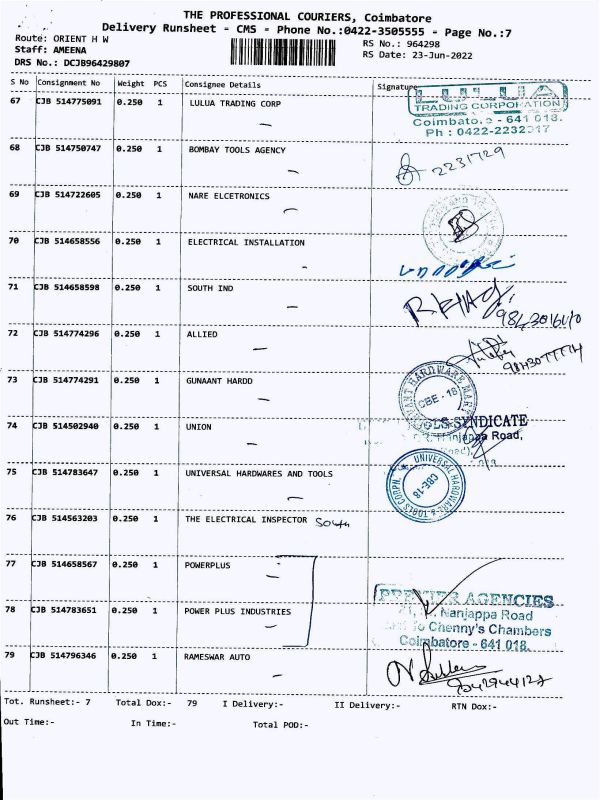 THE PROFESSIONAL COURIERS, Coimbatore
Delivery Runsheet - CMS - Phone No.:0422-3505555 - Page No.:7
Route: ORIENT H W
RS No.: 964298
Staff: AMEENA
RS Date: 23-Jun-2022
DRS No.: DCJB96429807
S No Consignment No Weight PCS Consignee Details Signature
67 CJB 514775091 0.250 1 LULUA TRADING CORP
LULUA
TRADING CORPORATION
Coimbatore - 641 018.
Ph : 0422-2232317
68 CJB 514750747 0.250 1 BOMBAY TOOLS AGENCY
2231729
69 CJB 514722605 0.250 1 NARE ELCETRONICS
70 CJB 514658556 0.250 1 ELECTRICAL INSTALLATION
71 CJB 514658598 0.250 1 SOUTH IND
72 CJB 514774296 0.250 1 ALLIED
73 CJB 514774291 0.250 1 GUNAANT HARDD
HARDWARE MART
CBE - 18
74 CJB 514502940 0.250 1 UNION
TOOLS SYNDICATE
Nanjappa Road,
75 CJB 514783647 0.250 1 UNIVERSAL HARDWARES AND TOOLS
UNIVERSAL HARDWARE & TOOLS CORPN.
CBE-18
76 CJB 514563203 0.250 1 THE ELECTRICAL INSPECTOR South
77 CJB 514658567 0.250 1 POWERPLUS
PREMIER AGENCIES
Nanjappa Road
78 CJB 514783651 0.250 1 POWER PLUS INDUSTRIES
Chenny's Chambers
Coimbatore - 641 018.
79 CJB 514796346 0.250 1 RAMESWAR AUTO
Tot. Runsheet:- 7 Total Dox:- 79 I Delivery:- II Delivery:- RTN Dox:-
Out Time:- In Time:- Total POD:-